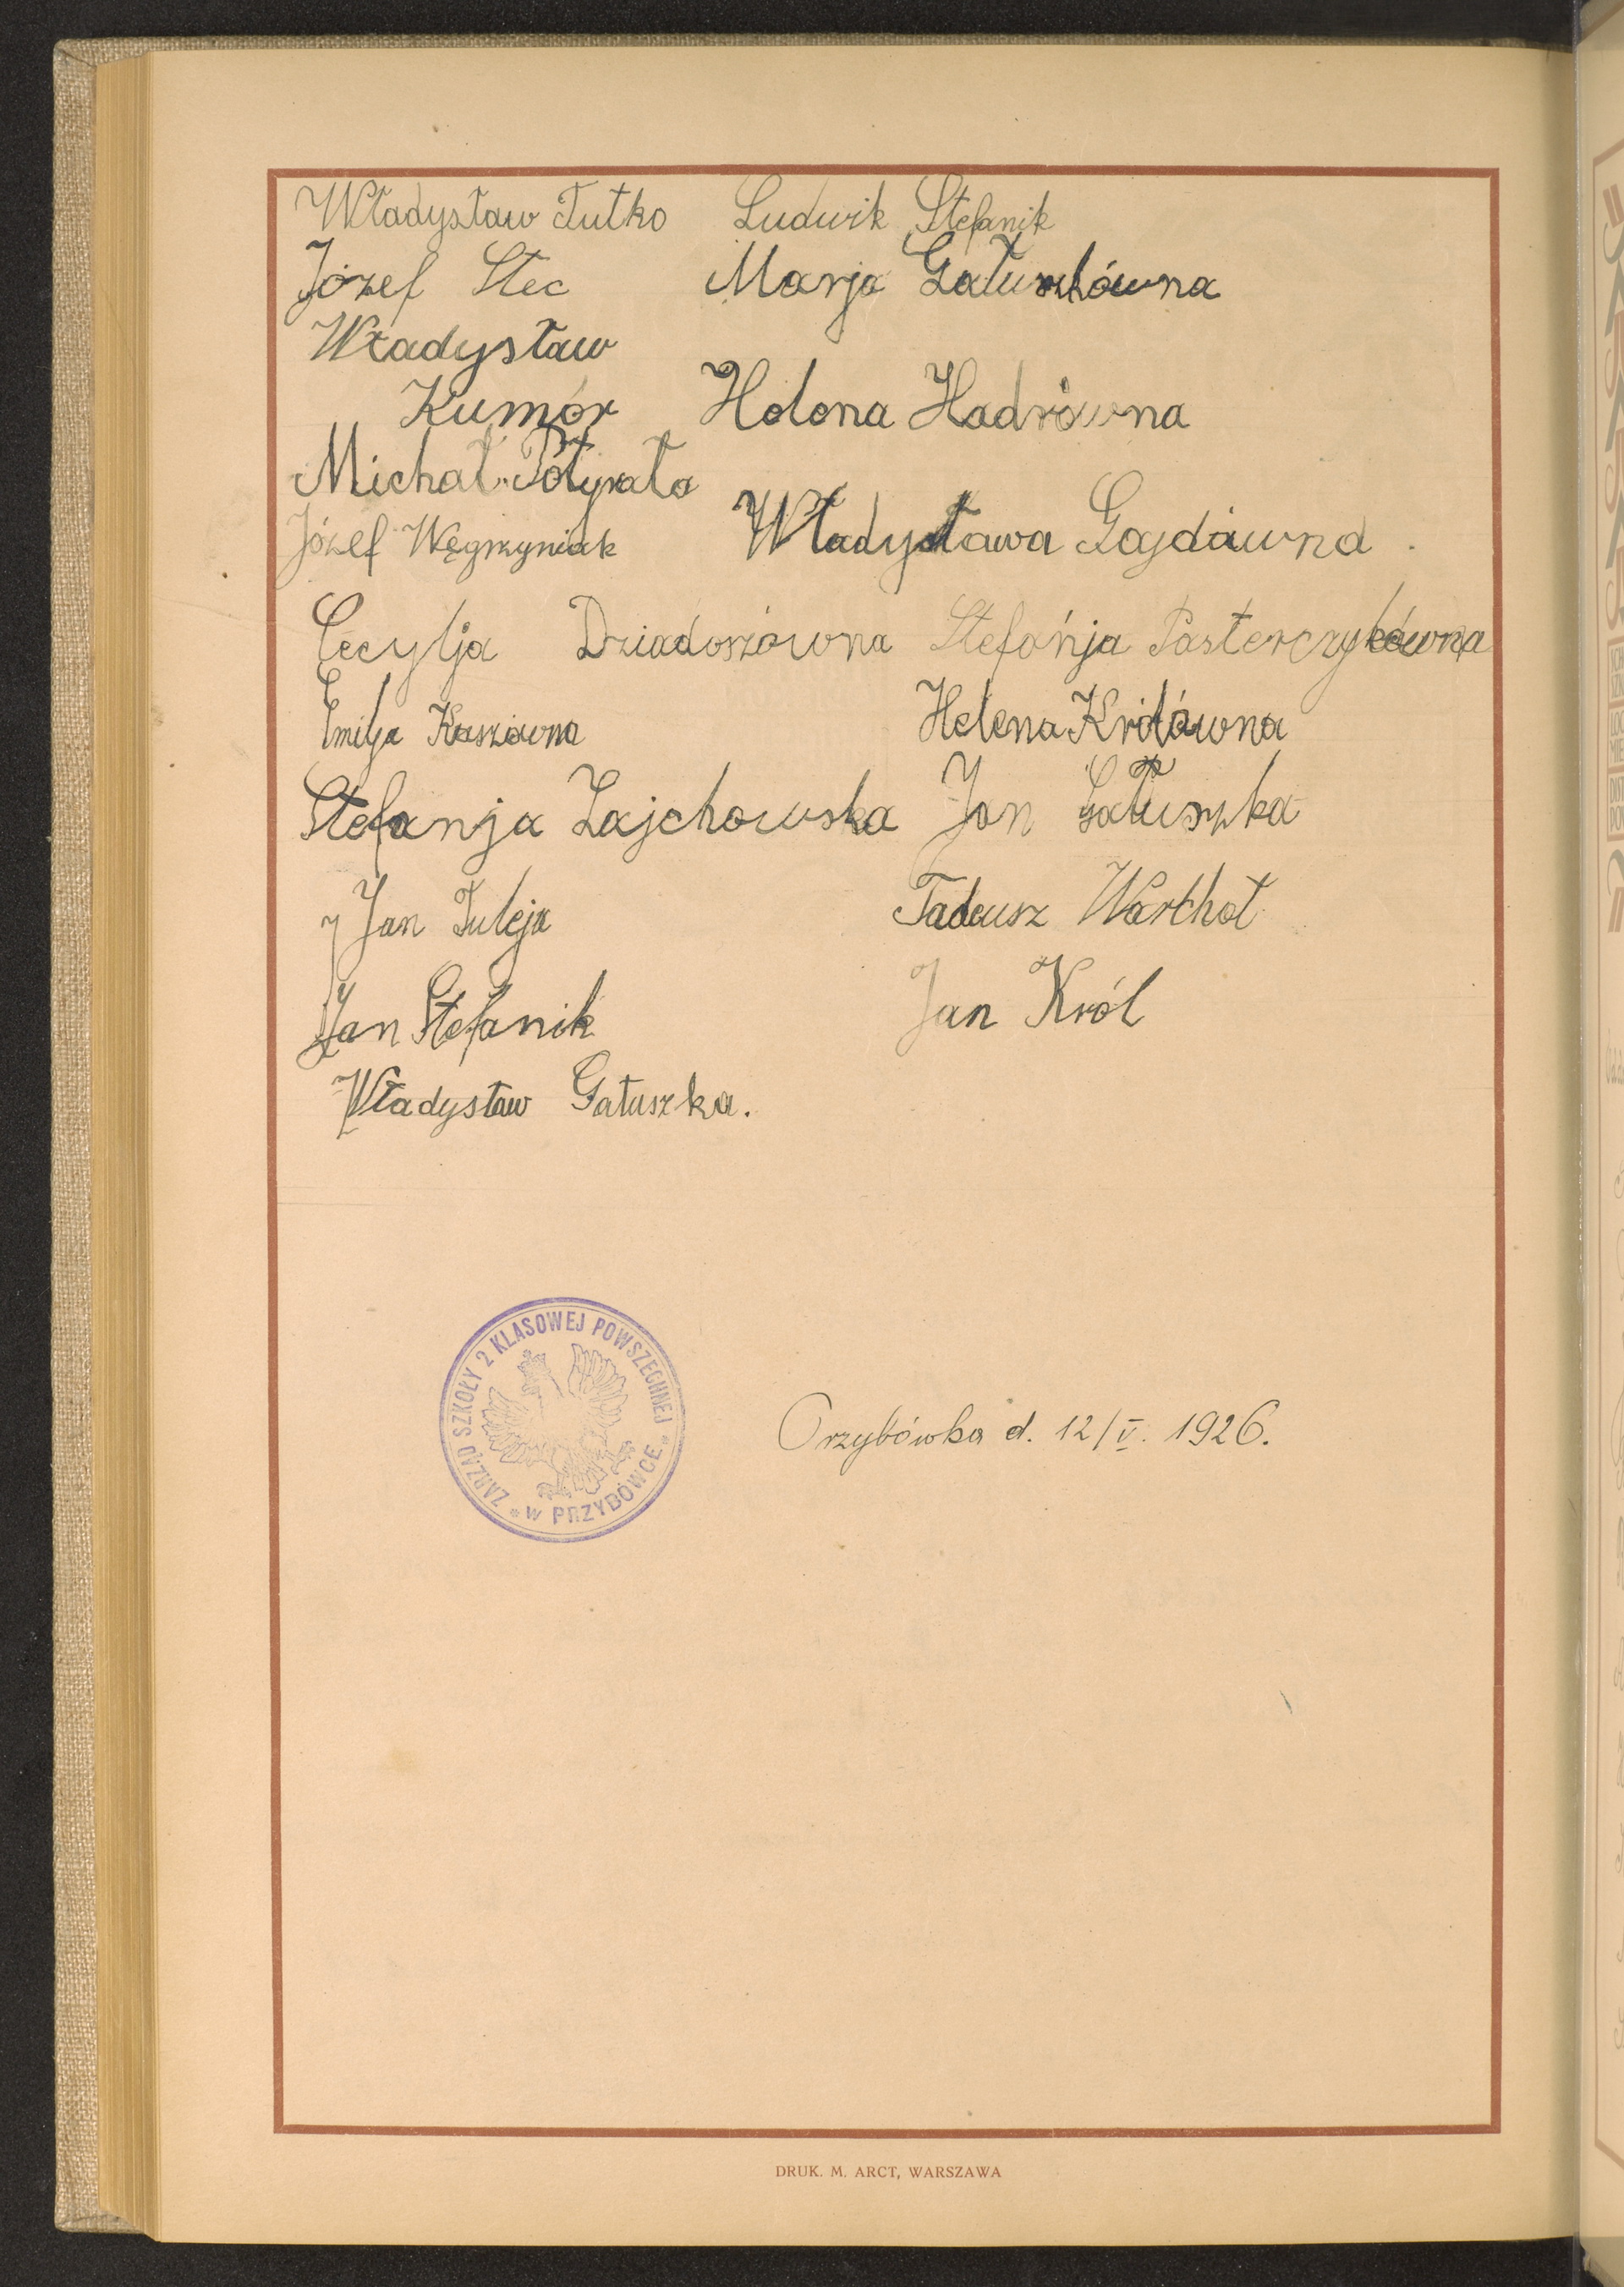 Władysław Tutko Ludwik Stefanik
Józef Stec Marja Gałuszkówna
Władysław
Kumór Helena Hadrówna
Michał Potyrała
Józef Węgrzyniak Władysława Gajdówna
Cecylja Dziadoszówna Stefanja Pasterczykówna
Emilja Kaszówna Helena Królówna
Stefanja Zajchowska Jan Gałuszka
Jan Tuleja Tadeusz Warchoł
Jan Stefanik Jan Król
Władysław Gałuszka.
ZARZĄD SZKOŁY 2 KLASOWEJ POWSZECHNEJ
* W PRZYBÓWCE *
Przybówka d. 12/V. 1926.
DRUK. M. ARCT, WARSZAWA